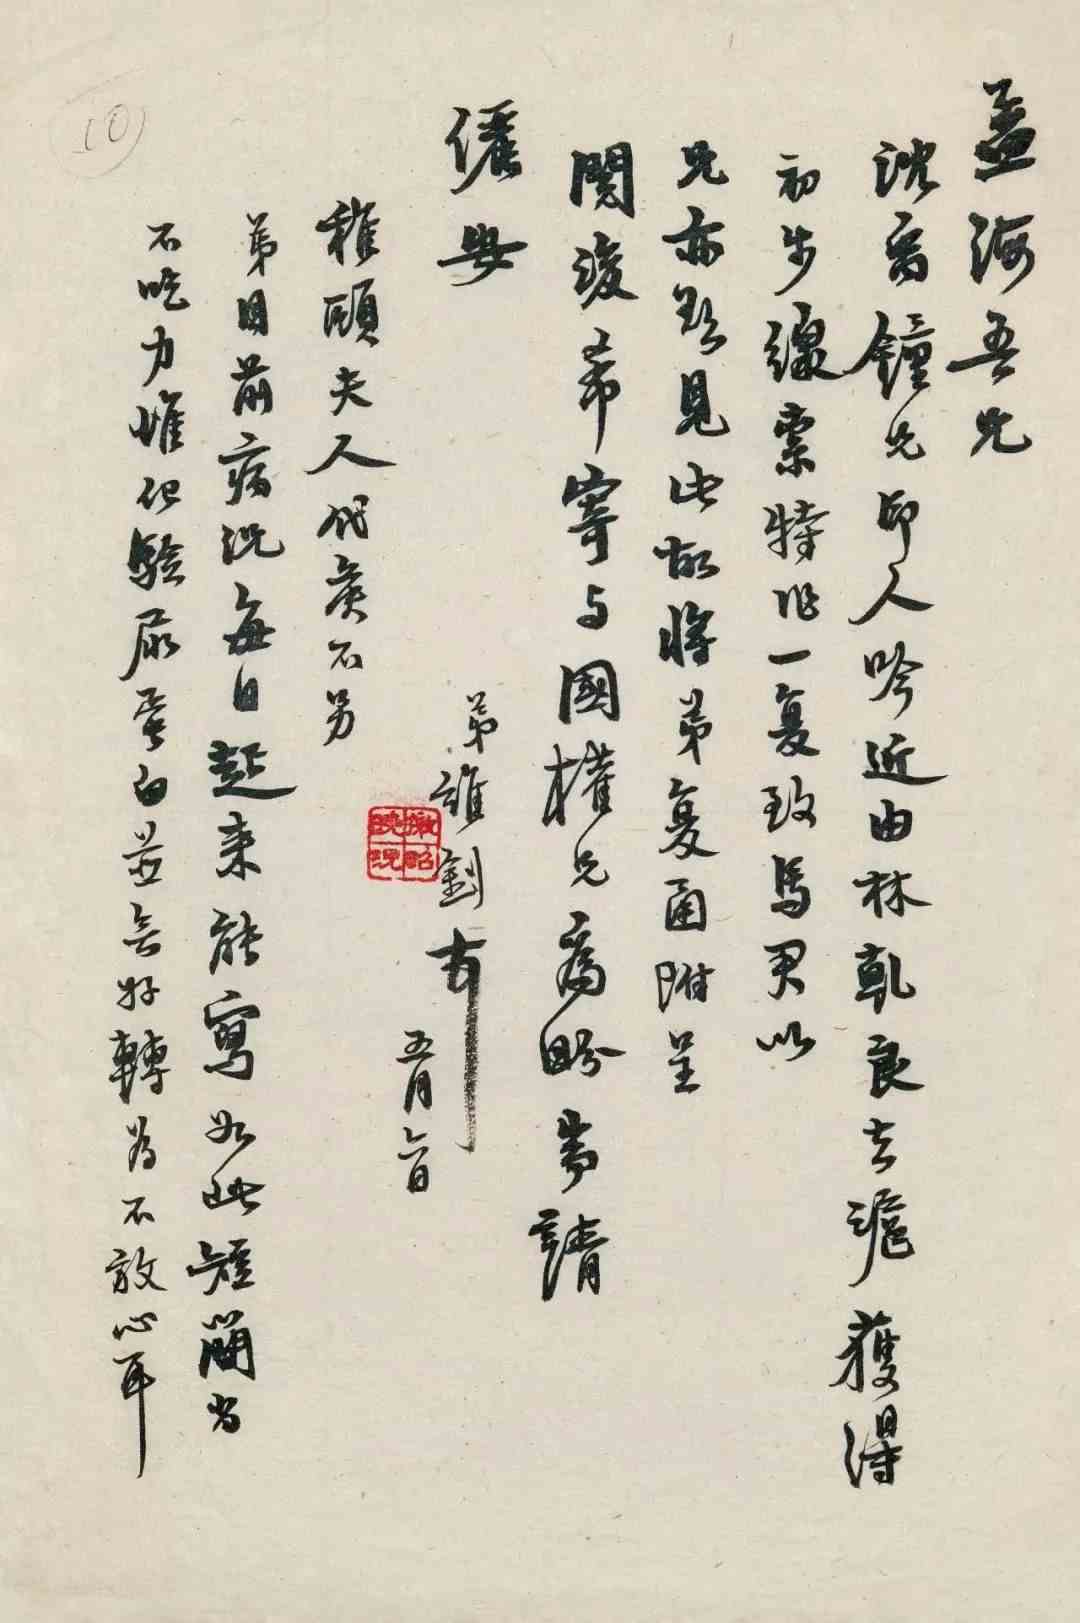 孟海吾兄
沈商鐘兄印人吟近由林乾良去滬獲得
初步線索特作一复致馬君以
兄亦欲見此故將弟复函附呈
閱後希寄与國權兄為盼耑请
儷安
弟誰釗
五月六日
稚頤夫人代矦不另
弟目前病況每日起来能寫如此短簡尚
不吃力惟化驗尿蛋白並無好轉為不放心耳
10